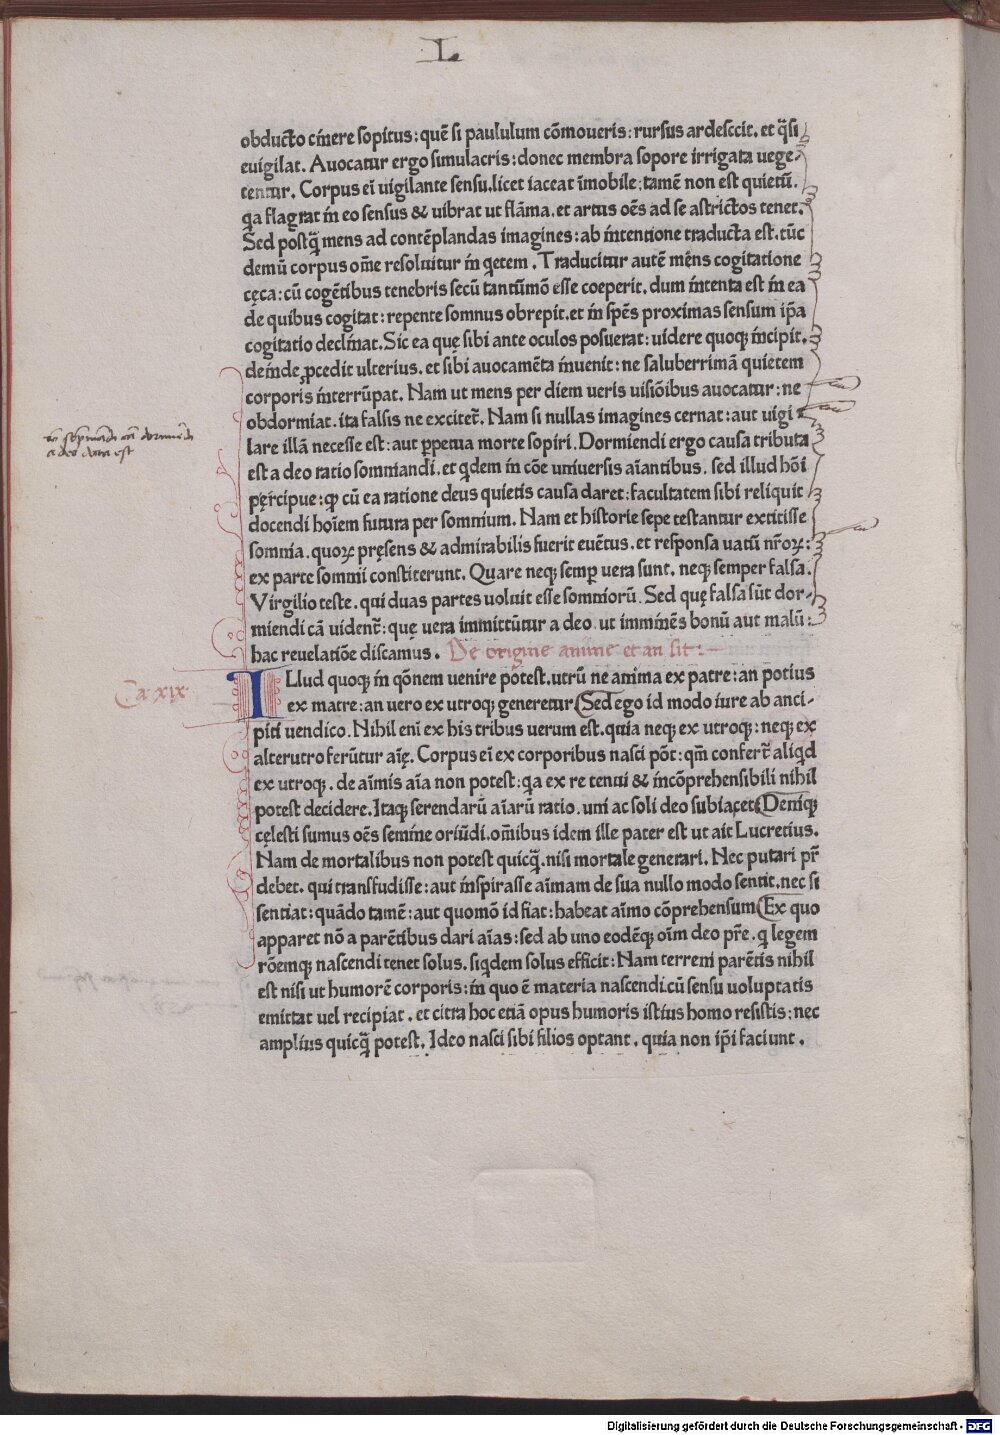 L
obducto cinere sopitus: quē si paululum cōmoueris: rursus ardescit. et q̄si
euigilat. Auocatur ergo simulacris: donec membra sopore irrigata uege-
tentur. Corpus ei uigilante sensu. licet iaceat īmobile: tamē non est quietū.
qa flagrat in eo sensus & uibrat ut flāma. et artus oēs ad se astrictos tenet.
Sed postq̄ mens ad contēplandas imagines: ab intentione traducta est. tūc
demū corpus om̄e resoluitur in qetem. Traducitur autē mens cogitatione
cęca: cū cogētibus tenebris secū tantūmō esse coeperit. dum intenta est in ea
de quibus cogitat: repente somnus obrepit. et in spēs proximas sensum ip̄a
cogitatio declinat. Sic ea quę sibi ante oculos posuerat: uidere quoqꝫ incipit.
deinde ꝓcedit ulterius. et sibi auocamēta inuenit: ne saluberrimā quietem
corporis interrūpat. Nam ut mens per diem ueris uisiōibus auocatur: ne
obdormiat. ita falsis ne excitet̄. Nam si nullas imagines cernat: aut uigi
lare illā necesse est: aut ꝑpetua morte sopiri. Dormiendi ergo causa tributa
est a deo ratio somniandi. et qdem in cōe uniuersis aīantibus. sed illud hōi
pręcipue: ꝙ cū ea ratione deus quietis causa daret: facultatem sibi reliquit
docendi hoīem futura per somnium. Nam et historie sepe testantur extitisse
somnia. quoꝝ pręsens & admirabilis fuerit euētus. et responsa uatū nr̄oꝝ:
ex parte somni constiterunt. Quare neqꝫ semꝑ uera sunt. neqꝫ semper falsa.
Virgilio teste. qui duas partes uoluit esse somniorū. Sed quę falsa sūt dor-
miendi cā uident̄: quę uera immittūtur a deo. ut imminēs bonū aut malū:
hac reuelatiōe discamus. De origine anime et an sit:
Ca xix
ILlud quoqꝫ in qōnem uenire pōtest. utrū ne anima ex patre: an potius
ex matre: an uero ex utroqꝫ generetur Sed ego id modo iure ab anci-
piti uendico. Nihil enī ex his tribus uerum est. quia neqꝫ ex utroqꝫ: neqꝫ ex
alterutro ferūtur aīę. Corpus ei ex corporibus nasci pōt: qm̄ confert̄ aliqd
ex utroqꝫ. de aīmis aīa non potest: qa ex re tenui & incōprehensibili nihil
potest decidere. Itaqꝫ serendarū aīarū ratio. uni ac soli deo subiacet Deniqꝫ
cęlesti sumus oēs semine oriūdi. om̄ibus idem ille pater est ut ait Lucretius.
Nam de mortalibus non potest quicq̄. nisi mortale generari. Nec putari pr̄
debet. qui transfudisse: aut inspirasse aīmam de sua nullo modo sentit. nec si
sentiat: quādo tamē: aut quomō id fiat: habeat aīmo cōprehensum Ex quo
apparet nō a parētibus dari aīas: sed ab uno eodēqꝫ oīm deo pr̄e. q legem
rōemqꝫ nascendi tenet solus. siqdem solus efficit: Nam terreni parētis nihil
est nisi ut humorē corporis: in quo ē materia nascendi. cū sensu uoluptatis
emittat uel recipiat. et citra hoc etiā opus humoris istius homo resistis: nec
amplius quicq̄ potest. Ideo nasci sibi filios optant. quia non ip̄i faciunt.
Digitalisierung gefördert durch die Deutsche Forschungsgemeinschaft - DFG